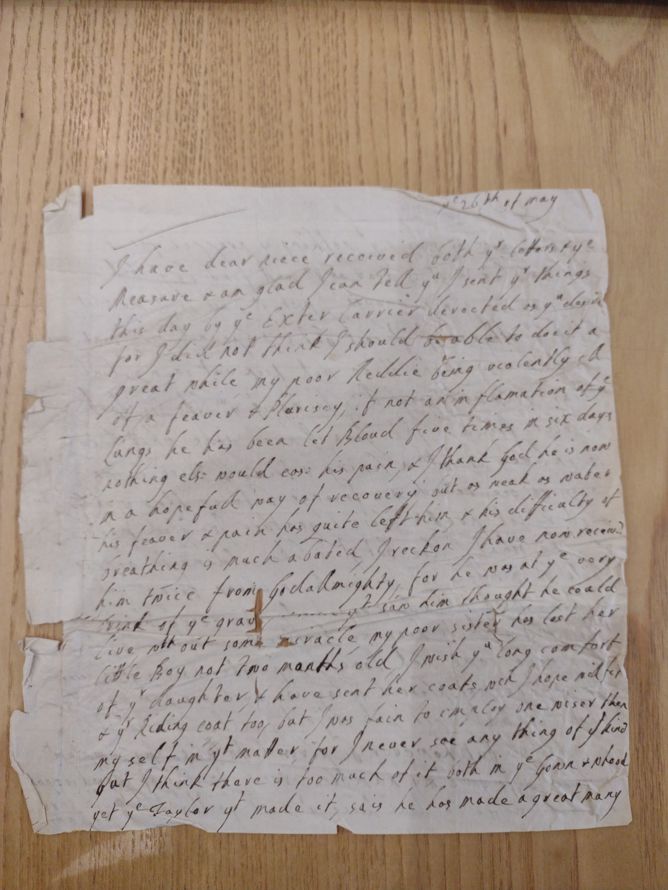 yᵉ 26th of may
I have dear niece received both yʳ letters & yᵉ
Measure & am glad I can tell yᵘ I sent yʳ things
this day by yᵉ Exter Carrier directed as yᵘ desire
for I did not think I should be able to doe it a
great while my poor Neddie being violently ill
of a feaver & Plurisey, if not an inflamation of yᵉ
lungs he has been let Bloud five times in six days
nothing els would eas his pain, & I thank God he is now
in a hopefull way of recovery but as weak as water
his feaver & pain has quite left him & his difficulty of
breathing is much abated I reckon I have now receivd
him twice from God allmighty, for he was at yᵉ very
brink of yᵉ grav yᵗ saw him thought he could
live wthout some miracle my poor sister has lost her
little Boy not two months old I wish yᵘ long comfort
of yʳ daughter, & have sent her coats wch I hope will fit
& yʳ Riding coat too, but I was fain to imploy one wiser then
my self in yᵗ matter for I never see any thing of yᵗ kind
but I think there is too much of it both in yᵉ Gown & whood
yet yᵉ Taylor yᵗ made it, sais he has made a great many